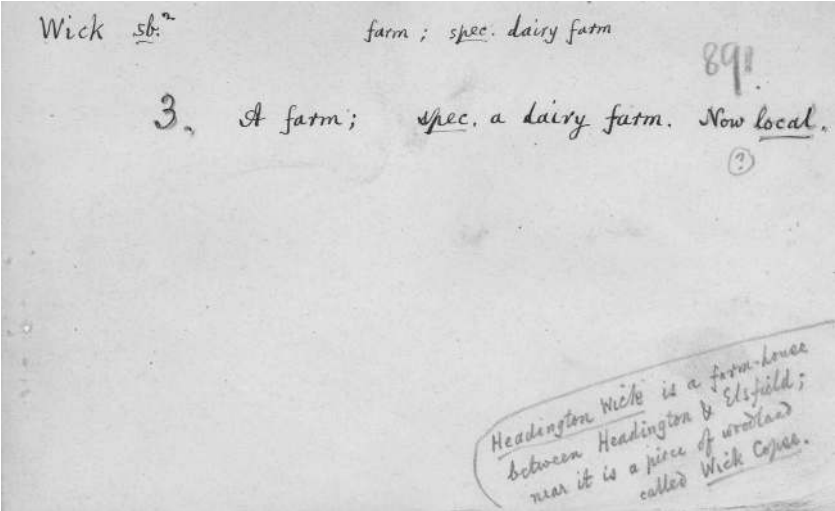 Wick sb.² farm; spec. dairy farm
891.
3. A farm; spec. a dairy farm. Now local.
(?)
Headington Wick is a farm-house
between Headington & Elsfield;
near it is a piece of woodland
called Wick Copse.